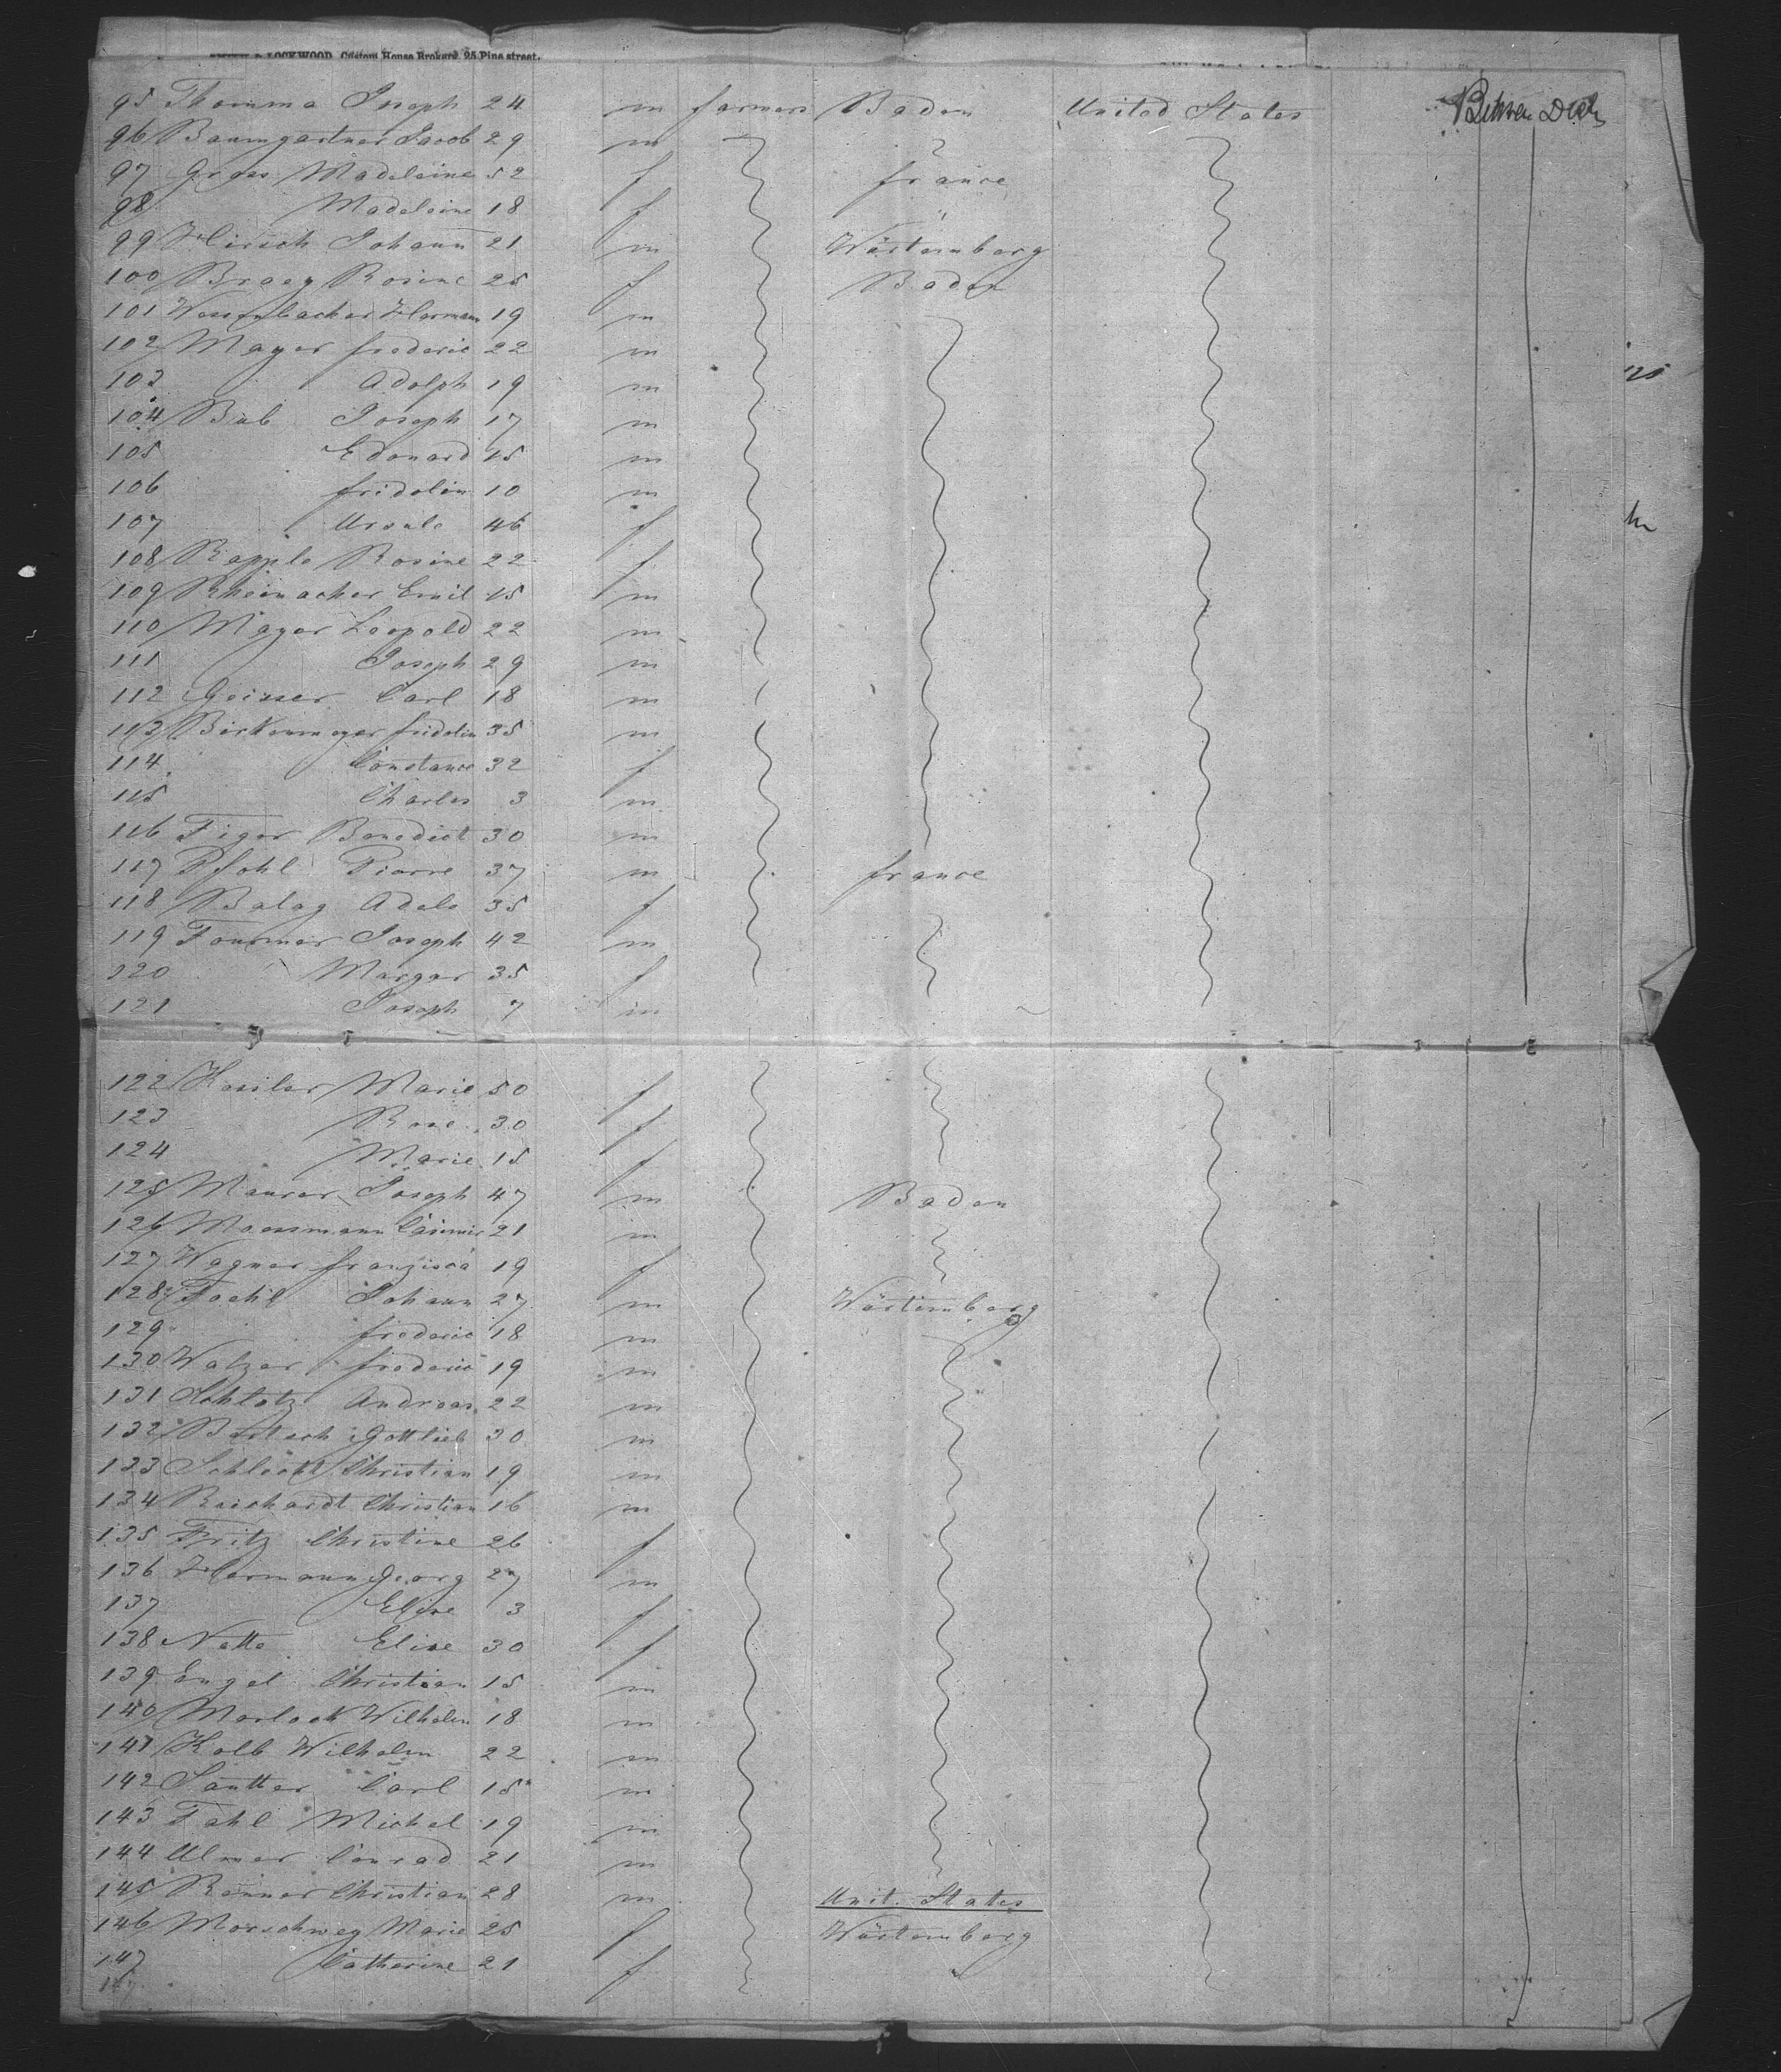 & LOCKWOOD, Custom House Brokers, 25 Pine street.
95 Thomma Joseph 24 m farmers Baden United States Between Decks
96 Baumgartner Jacob 29 m "
97 Gross Madeleine 52 f france
98 Madeleine 18 f "
99 Hirsch Johann 21 m Würtemberg
100 Braey Rosine 25 f Baden
101 Hermann 19 m
102 Mayer frederic 22 m
103 Adolph 19 m
104 Bub Joseph 17 m
105 Edouard 15 m
106 fridolin 10 m
107 Ursule 46 f
108 Rapple Rosine 22 f
109 Rheinacher Emil 15 m
110 Mayer Leopold 22 m
111 Joseph 29 m
112 Geisser Carl 18 m
113 Birkenmeyer fridolin 35 m
114 Constance 32 f
115 Charles 3 m
116 Figer Benedict 30 m
117 Pfohl Pierre 37 m france
118 Balay Adele 35 f
119 Fournier Joseph 42 m
120 Margar 35 f
121 Joseph 7 m
122 Marie 50 f
123 Rose 30 f
124 Marie 15 f
125 Maurer Joseph 47 m Baden
126 Moessmann Casimir 21 m
127 Wagner franzisca 19 f
128 Johann 27 m Würtemberg
129 frederic 18 m
130 Walzer frederic 19 m
131 Schlotz Andreas 22 m
132 Bartsch Gottlieb 30 m
133 Christian 19 m
134 Christian 16 m
135 Fritz Christine 26 f
136 Hermann Georg 27 m
137 Elise 3 f
138 Notte Elise 30 f
139 Engel Christian 15 m
140 Morlock Wilhelm 18 m
141 Kolb Wilhelm 22 m
142 Sautter Carl 15 m
143 Fahl Michel 19 m
144 Ulmer Conrad 21 m
145 Renner Christian 28 m Unit. States
146 Morschweg Marie 25 f Würtemberg
147 Catherine 21 f "